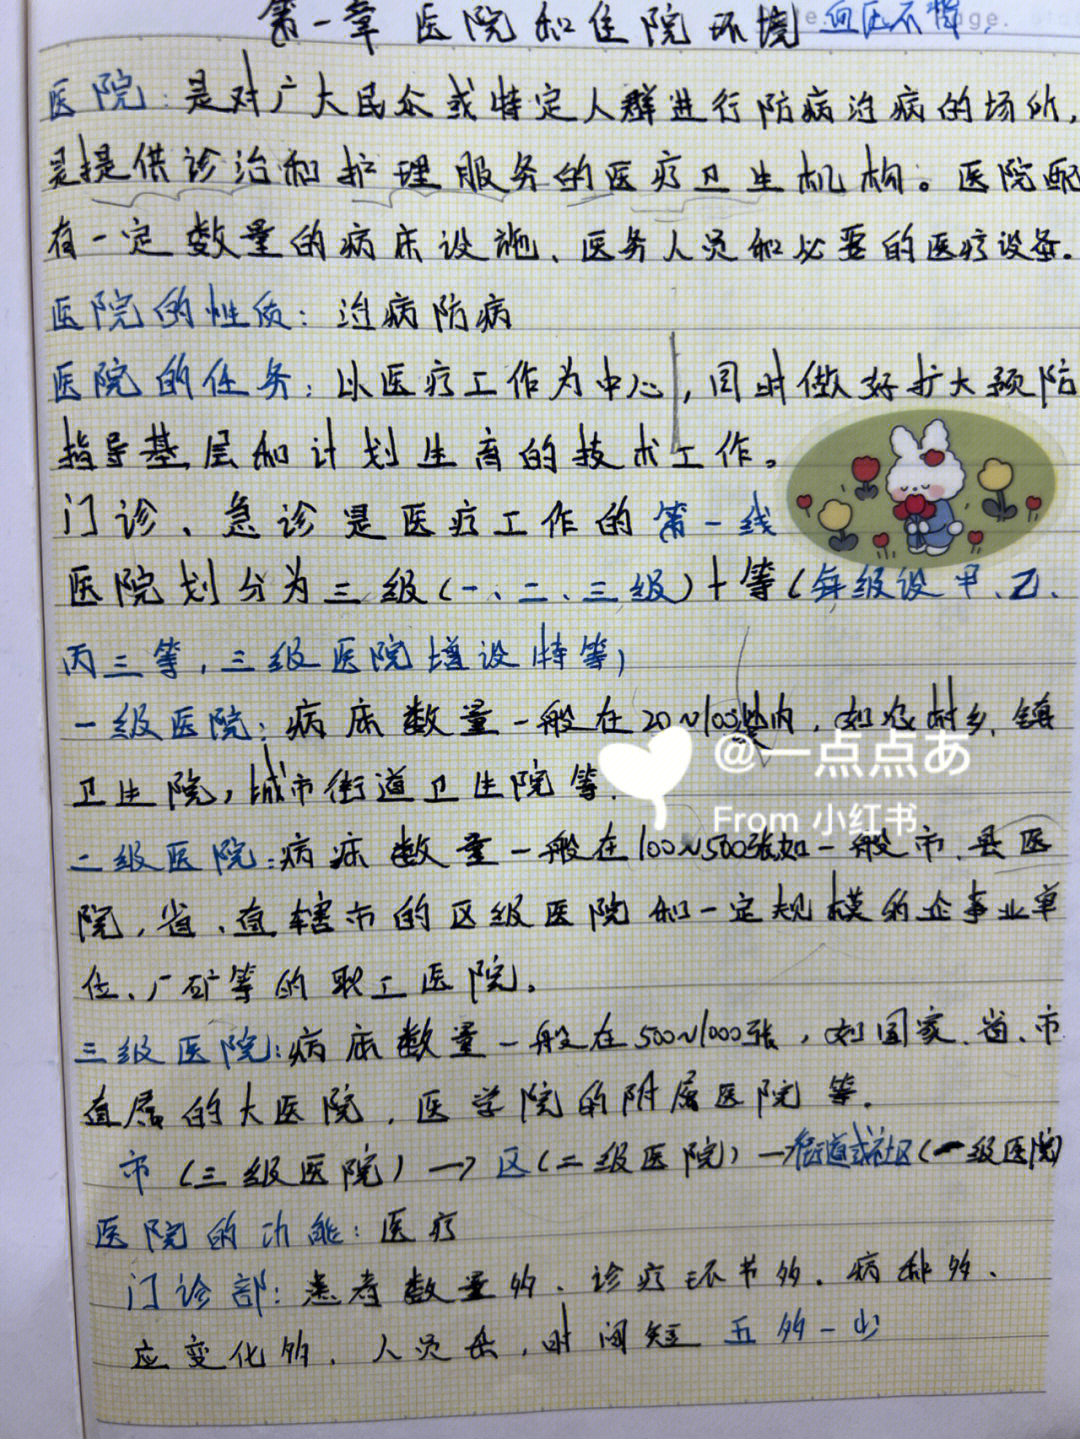 第一章 医院和住院环境
医院：是对广大民众或特定人群进行防病治病的场所，
是提供诊治和护理服务的医疗卫生机构。医院配
有一定数量的病床设施、医务人员和必要的医疗设备。
医院的性质：治病防病
医院的任务：以医疗工作为中心，同时做好扩大预防
指导基层和计划生育的技术工作。
门诊、急诊是医疗工作的第一线
医院划分为三级（一、二、三级）十等（每级设甲、乙、
丙三等，三级医院增设特等）
一级医院：病床数量一般在20~100张内，如农村乡、镇
卫生院，城市街道卫生院等.
@一点点あ
From 小红书
二级医院：病床数量一般在100~500张如一般市、县医
院，省、直辖市的区级医院和一定规模的企事业单
位、厂矿等的职工医院。
三级医院：病床数量一般在500~1000张，如国家、省、市
直属的大医院，医学院的附属医院等.
市（三级医院）→区（二级医院）→街道或社区（一级医院）
医院的功能：医疗
门诊部：患者数量多、诊疗环节多．病种多、
应变化多．人员杂，时间短 五多一少